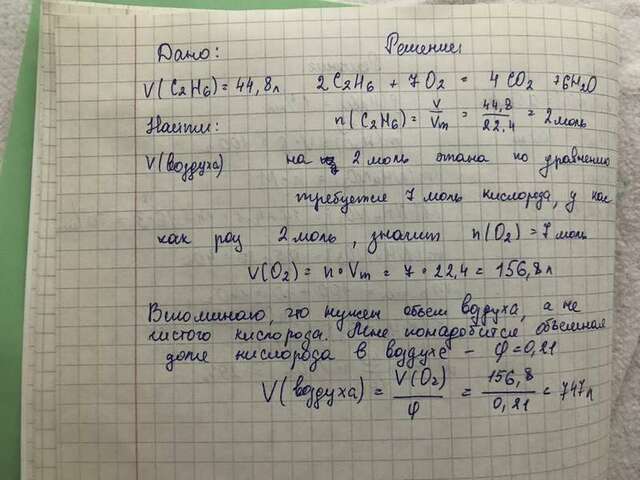 Дано: Решение:
V(C2H6) = 44,8л 2C2H6 + 7O2 = 4CO2 + 6H2O
Найти: n(C2H6) = V/Vm = 44,8/22,4 = 2 моль
V(воздуха) на 2 моль этана по уравнению
требуется 7 моль кислорода, у нас
как раз 2 моль, значит n(O2) = 7 моль
V(O2) = n • Vm = 7 • 22,4 = 156,8л
Вспоминаю, что нужен объем воздуха, а не
чистого кислорода. Мне понадобится объемная
доля кислорода в воздухе – φ = 0,21
V(воздуха) = V(O2)/φ = 156,8/0,21 = 747л